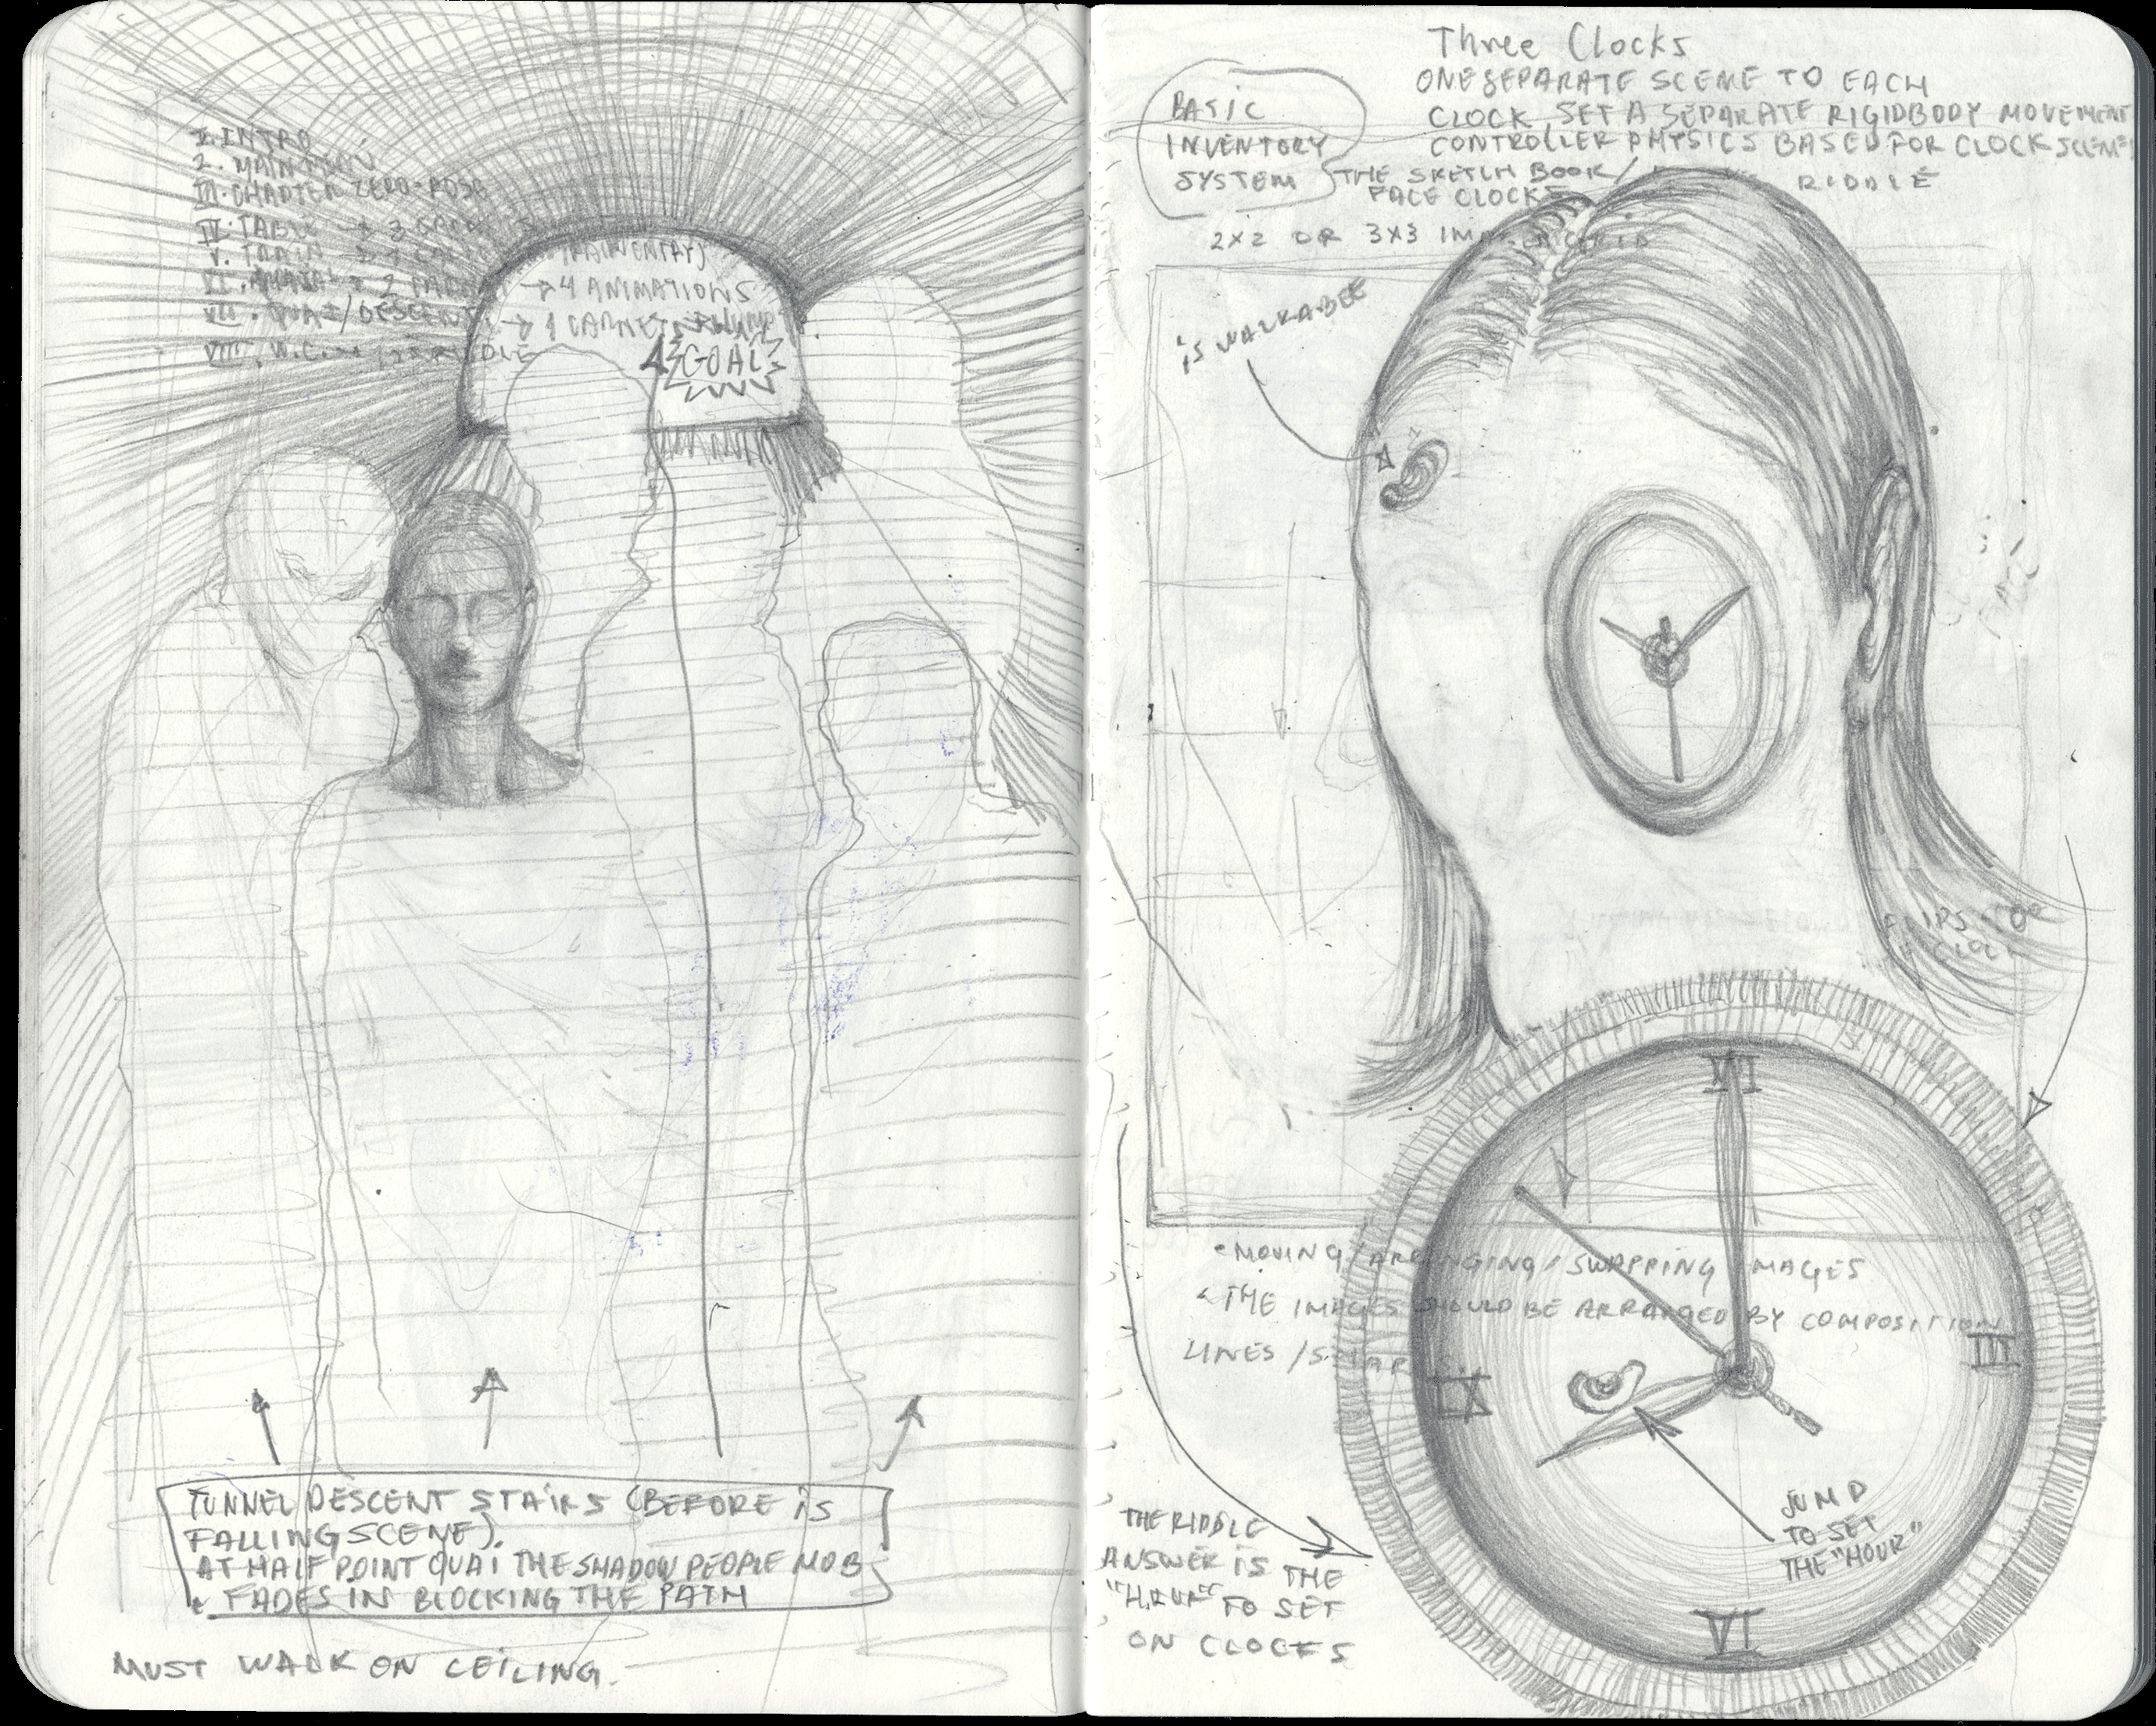 I. INTRO
2. MAIN
III. CHAPTER ZERO
IV. TABLE
V. TRAIN
VI.
→ 4 ANIMATIONS
VII. QUAI/DESCENT → 1 CARNET
VIII. W.C.
GOAL
TUNNEL DESCENT STAIRS (BEFORE IS
FALLING SCENE).
AT HALF POINT QUAI THE SHADOW PEOPLE MOB
FADES IN BLOCKING THE PATH
MUST WALK ON CEILING.
Three Clocks
ONE SEPARATE SCENE TO EACH
CLOCK. SET A SEPARATE RIGIDBODY MOVEMENT
CONTROLLER PHYSICS BASED FOR CLOCK SCENES
BASIC
INVENTORY
SYSTEM
THE SKETCH BOOK/ RIDDLE
FACE CLOCK
2X2 OR 3X3
is WALKABEE
FLIPS TO
CLOCK
VI
III
IX
VI
• MOVING/ARRANGING/SWAPPING IMAGES
THE IMAGES SHOULD BE ARRANGED BY COMPOSITION
LINES/
JUMP
TO SET
THE "HOUR"
THE RIDDLE
ANSWER IS THE
"HOUR" TO SET
ON CLOCKS